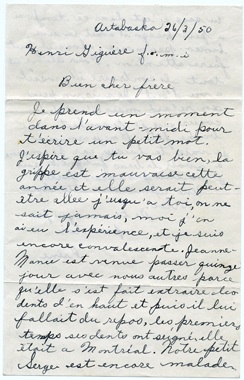 Artabaska 26/3/50
Henri Giguère f.m.i
Bien cher frère
Je prend un moment
dans l'avant midi pour
t'écrire un petit mot.
J'espère que tu vas bien, la
grippe est mauvaise cette
année et elle serait peut-
être allée j'usqu'a toi, on ne
sait jamais, moi j'en
ai eu l'expérience, et je suis
encore convalescente, Jeanne-
Mance est venue passer quinze
jour avec nous autres parce
qu'elle s'est fait extraire les
dents d'en haut et puis il lui
fallait du repos, les premiers
temps ses dents ont seigné, elle
était a Montréal. Notre petit
Serge est encore malade